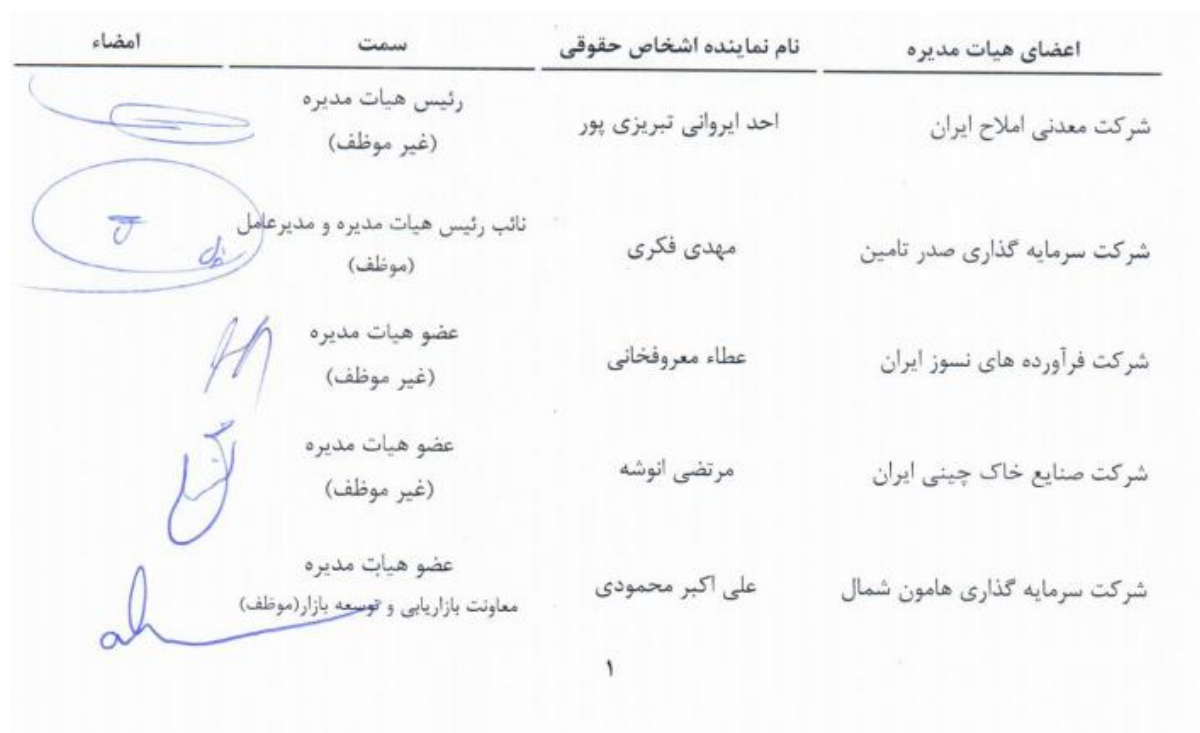 اعضای هیات مدیره نام نماینده اشخاص حقوقی سمت امضاء
شرکت معدنی املاح ایران احد ایروانی تبریزی پور رئیس هیات مدیره
(غیر موظف)
شرکت سرمایه گذاری صدر تامین مهدی فکری نائب رئیس هیات مدیره و مدیرعامل
(موظف)
شرکت فرآورده های نسوز ایران عطاء معروفخانی عضو هیات مدیره
(غیر موظف)
شرکت صنایع خاک چینی ایران مرتضی انوشه عضو هیات مدیره
(غیر موظف)
شرکت سرمایه گذاری هامون شمال علی اکبر محمودی عضو هیات مدیره
معاونت بازاریابی و توسعه بازار(موظف)
۱